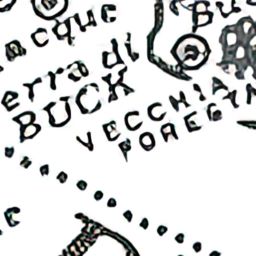 acque
Bu
erra di
BUCK
VECCHIA
FOREST